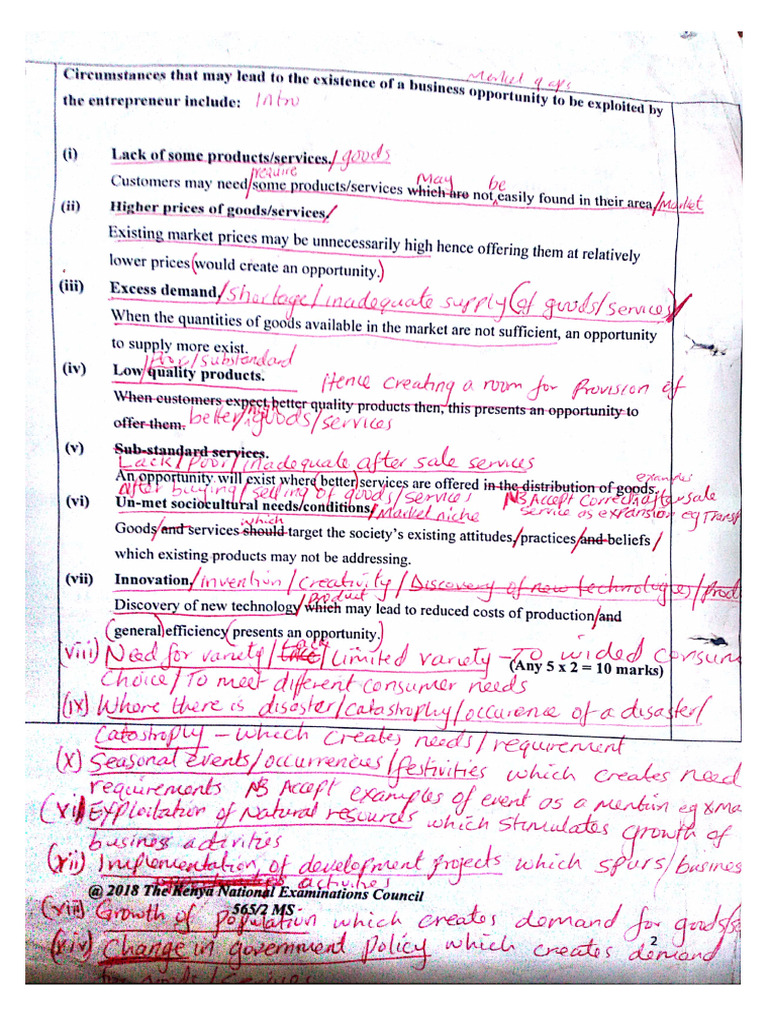 Market gaps
Circumstances that may lead to the existence of a business opportunity to be exploited by
the entrepreneur include: Intro
(i) Lack of some products/services./goods
require May be
Customers may need/some products/services which are not easily found in their area/Market
(ii) Higher prices of goods/services/
Existing market prices may be unnecessarily high hence offering them at relatively
lower prices (would create an opportunity.)
(iii) Excess demand/shortage/inadequate supply (of goods/services)
When the quantities of goods available in the market are not sufficient, an opportunity
to supply more exist.
/Poor/substandard
(iv) Low quality products. Hence creating a room for Provision of
When customers expect better quality products then, this presents an opportunity to
offer them. better goods/services
(v) Sub-standard services.
Lack/Poor/inadequate after sale services
examples
An opportunity will exist where (better) services are offered in the distribution of goods.
After buying/selling of goods/services NB Accept Correct after sale
(vi) Un-met sociocultural needs/conditions/Market niche service as expansion eg Transp
which
Goods/and services should target the society's existing attitudes,/practices/and beliefs/
which existing products may not be addressing.
(vii) Innovation,/invention/Creativity/Discovery of new technologies/prod
product
Discovery of new technology/which may lead to reduced costs of production/and
(general) efficiency (presents an opportunity.)
(viii) Need for variety/Limited variety - To wided consum
(Any 5 x 2 = 10 marks)
Choice/To meet different consumer needs
(ix) Where there is disaster/catastrophy/occurence of a disaster/
Catastrophy - which creates needs/requirement
(x) Seasonal events/occurrencies/festivities which creates need
requirements NB Accept examples of event as a mention eg xma
(xi) Exploitation of Natural resources which stimulates growth of
business activities
(xii) Implementation of development projects which spurs/busines
activities
@ 2018 The Kenya National Examinations Council
565/2 MS
(viii) Growth of population which creates demand for goods/se
2
(xiv) Change in government policy which creates demand
for goods/services